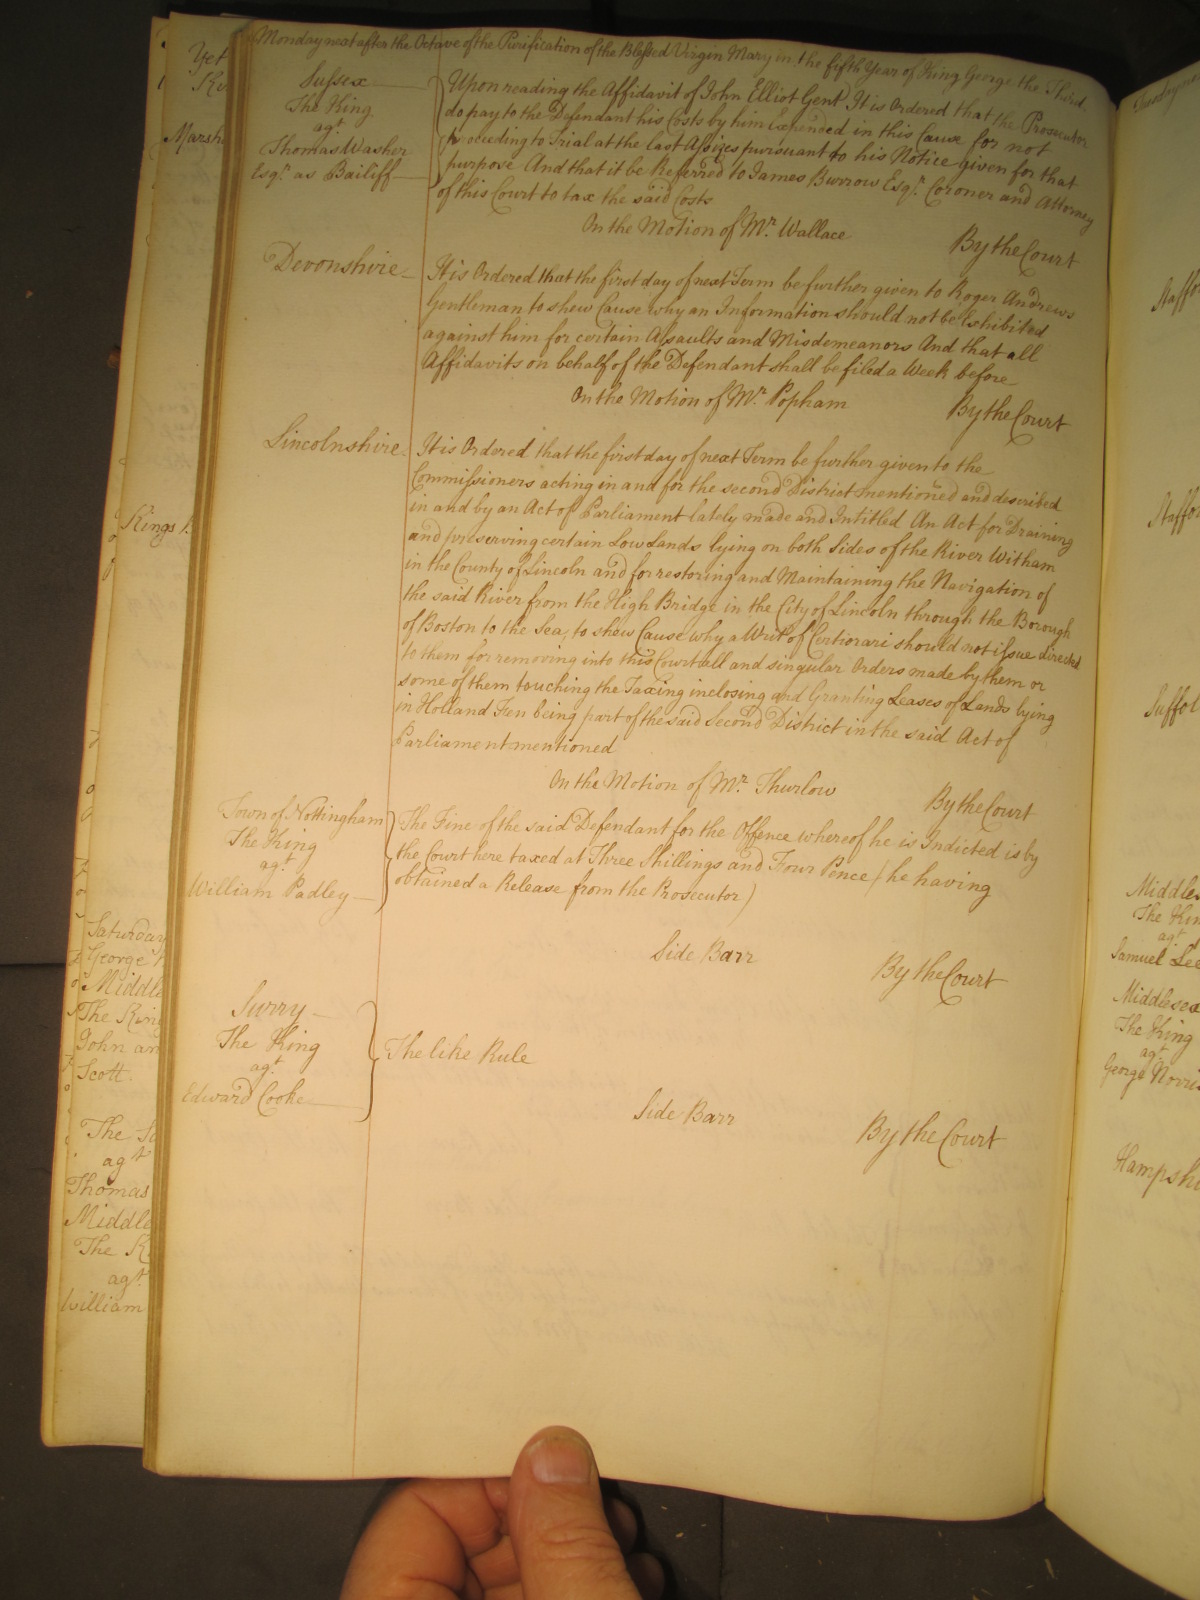 Monday next after the Octave of the Purification of the Blessed Virgin Mary in the fifth Year of King George the Third
Sussex
The King
agt
Thomas Washer
Esqr. as Bailiff
Upon reading the Affidavit of John Elliot Gent It is Ordered that the Prosecutor
do pay to the Defendant his Costs by him Expended in this Cause for not
proceeding to Trial at the last Assizes pursuant to his Notice given for that
purpose And that it be Referred to James Burrow Esqr. Coroner and Attorney
of this Court to tax the said Costs
On the Motion of Mr. Wallace
By the Court
Devonshire
It is Ordered that the first day of next Term be further given to Roger Andrews
Gentleman to shew Cause why an Information should not be Exhibited
against him for certain Assaults and Misdemeanors And that all
Affidavits on behalf of the Defendant shall be filed a Week before
On the Motion of Mr. Popham
By the Court
Lincolnshire
It is Ordered that the first day of next Term be further given to the
Commissioners acting in and for the second District mentioned and described
in and by an Act of Parliament lately made and Intitled An Act for Draining
and preserving certain Low Lands lying on both Sides of the River Witham
in the County of Lincoln and for restoring and Maintaining the Navigation of
the said River from the High Bridge in the City of Lincoln through the Borough
of Boston to the Sea, to shew Cause why a Writ of Certiorari should not issue directed
to them for removing into this Court all and singular Orders made by them or
some of them touching the Taxing inclosing and Granting Leases of Lands lying
in Holland Fen being part of the said Second District in the said Act of
Parliament mentioned
On the Motion of Mr. Thurlow
By the Court
Town of Nottingham
The King
agt
William Padley
The Fine of the said Defendant for the Offence whereof he is Indicted is by
the Court here taxed at Three Shillings and Four Pence (he having
obtained a Release from the Prosecutor)
Side Barr
By the Court
Surry
The King
agt
Edward Cooke
The like Rule
Side Barr
By the Court
Yet
Kings
Saturday
George
Middle
The King
John an
Scott.
The
agt
Thomas
Middle
The K
agt
William
Staffor
Staffor
Suffol
Middle
The Kin
agt
Samuel Lee
Middlesex
The King
agt
George Norris
Hampshi